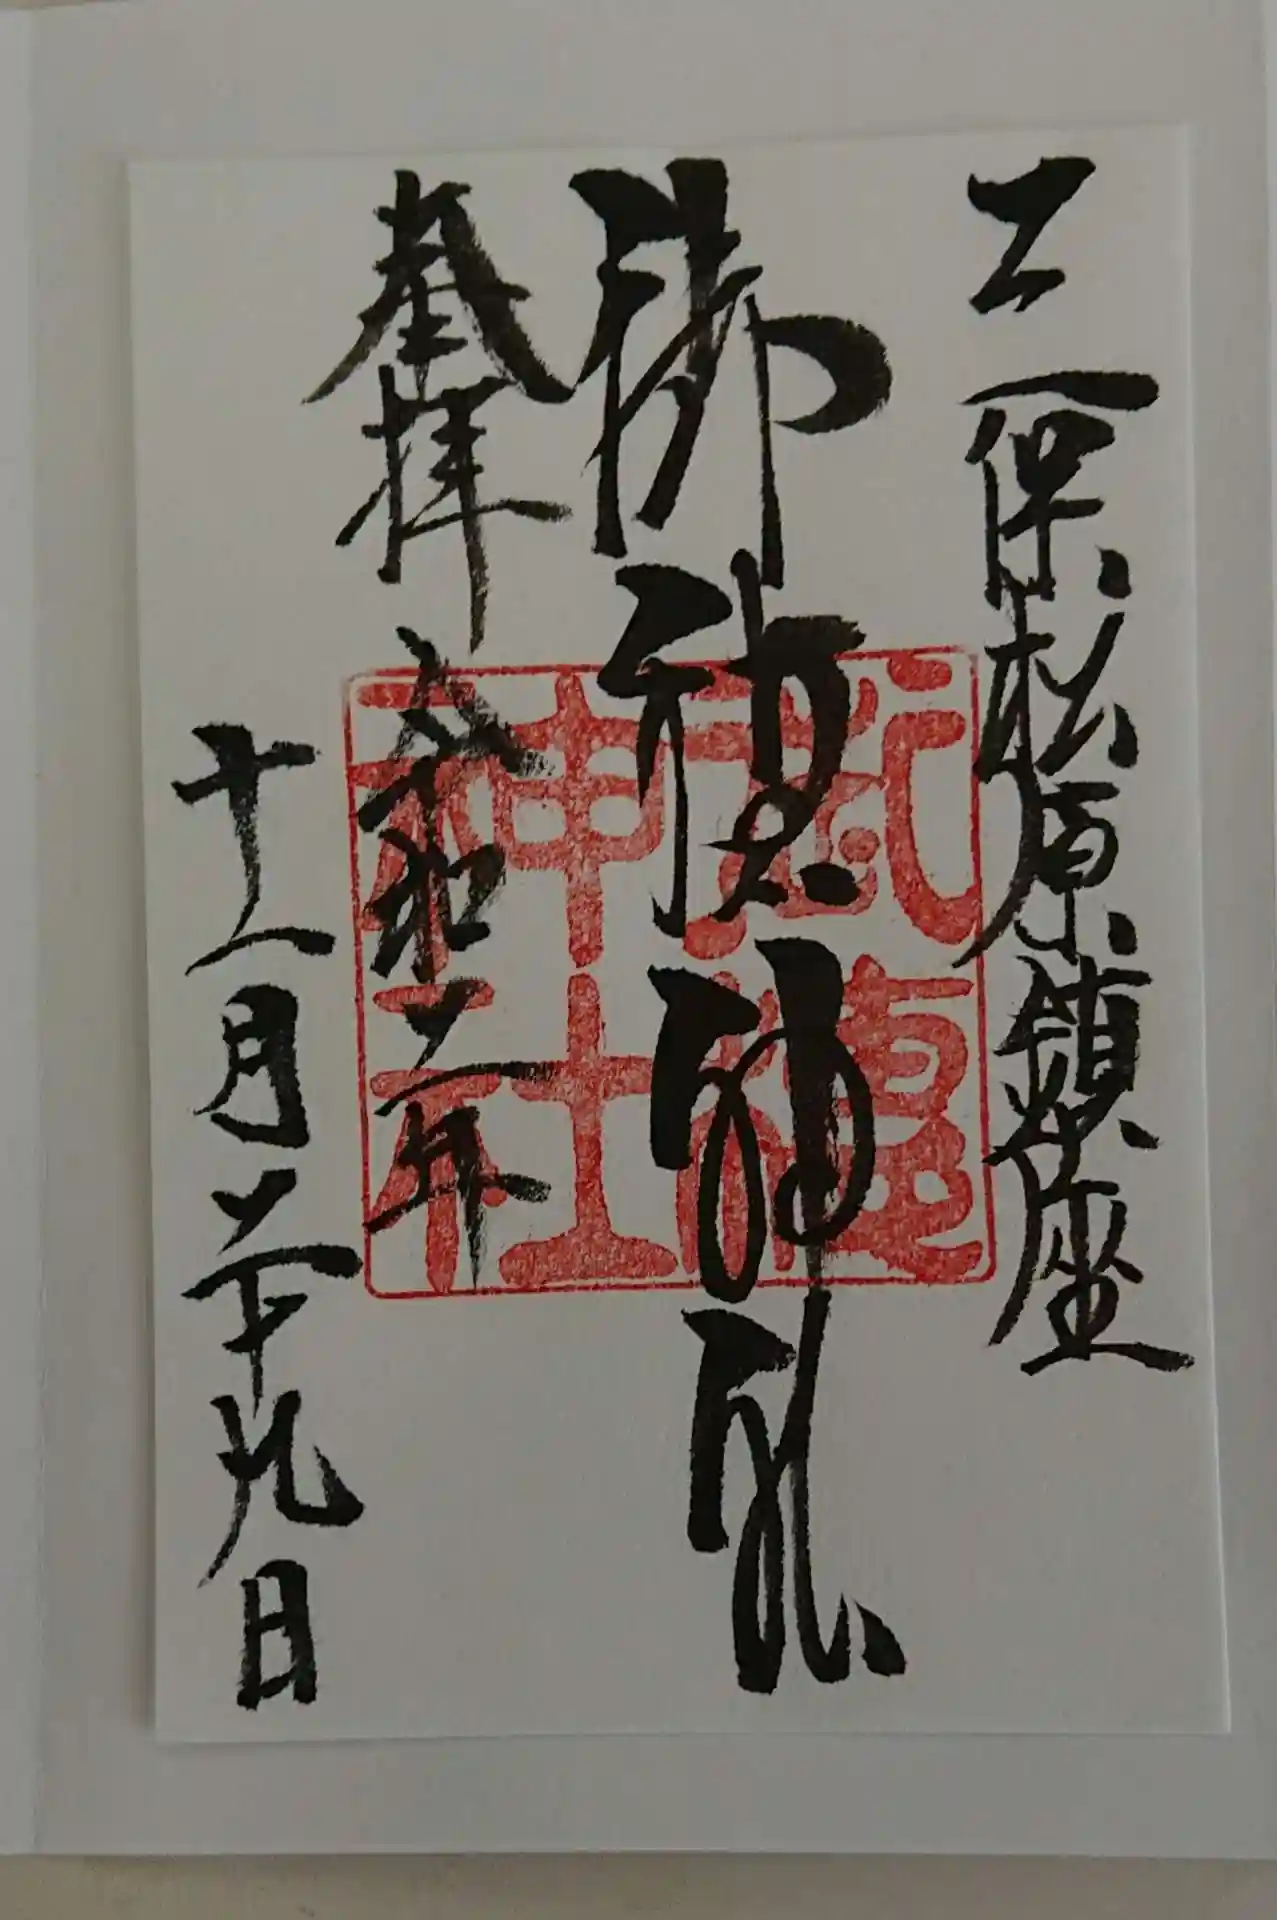 三保松原鎮座
御穂神社
奉拝 令和二年
十一月二十九日
神社